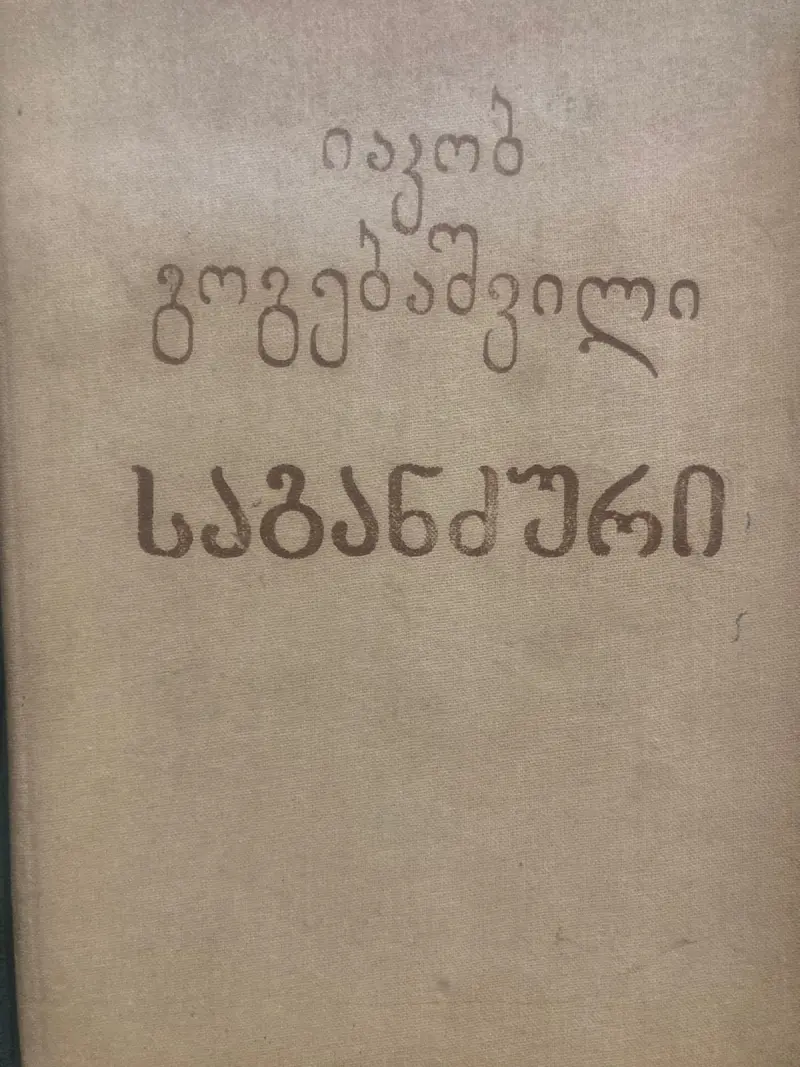 იაკობ
გოგებაშვილი
საგანძური